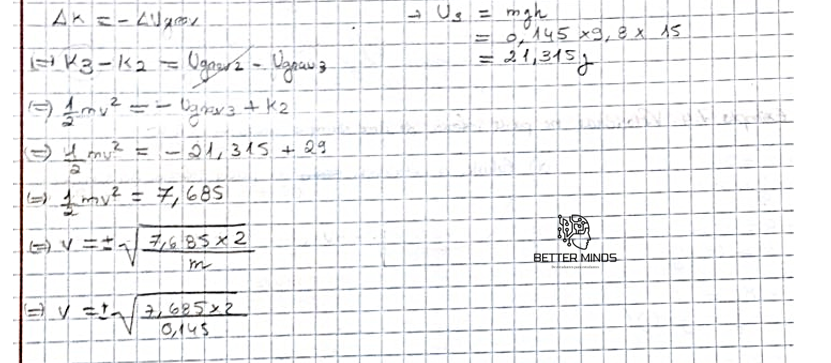 ΔK = - ΔUgrav
(=) K3 - K2 = Ugrav2 - Ugrav3
(=) 1/2 mv² = - Ugrav3 + K2
(=) 1/2 mv² = - 21,315 + 29
(=) 1/2 mv² = 7,685
(=) v = ±√(7,685 × 2 / m)
(=) v = ±√(7,685 × 2 / 0,145)
→ U3 = mgh
= 0,145 × 9,8 × 15
= 21,315 J
BETTER MINDS